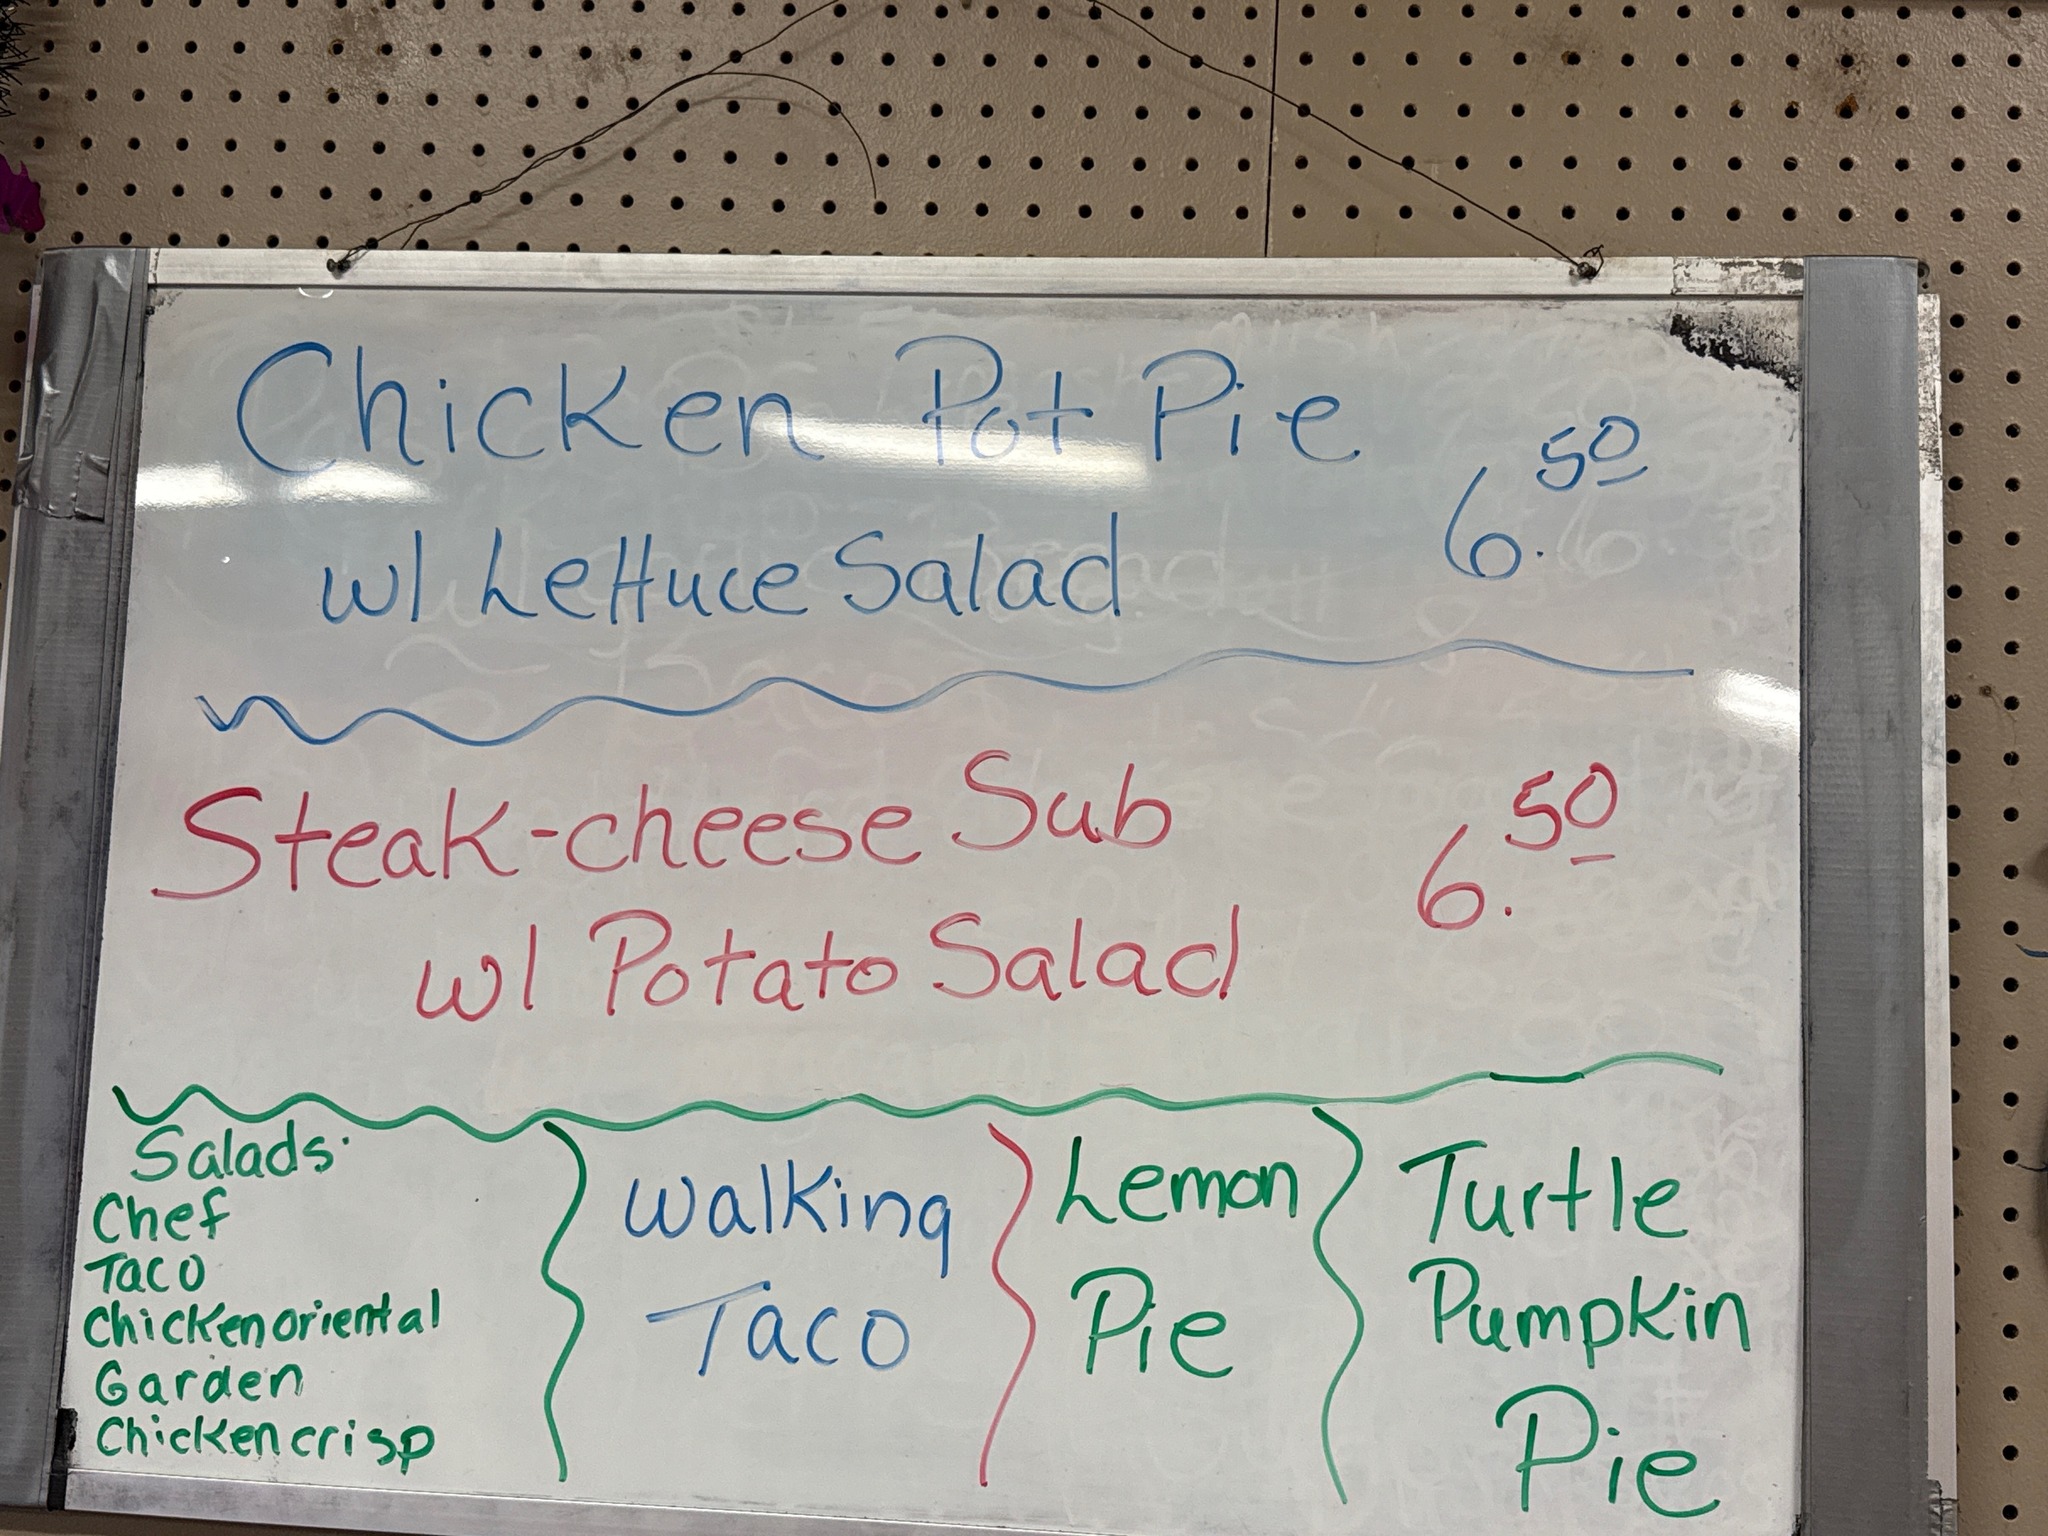 Chicken Pot Pie
w/ Lettuce Salad
6.50
Steak-cheese Sub
w/ Potato Salad
6.50
Salads:
Chef
Taco
Chicken oriental
Garden
Chicken crisp
Walking
Taco
Lemon
Pie
Turtle
Pumpkin
Pie